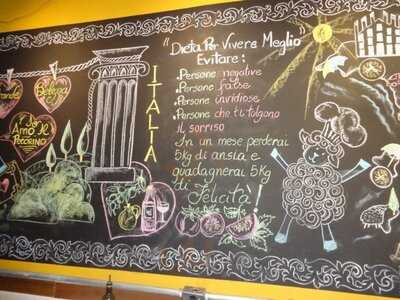 "Dieta Per Vivere Meglio"
Evitare:
.Persone negative
.Persone false
.Persone invidiose
.Persone che ti tolgono
il sorriso
In un mese perderai
5kg di ansia e
guadagnerai 5kg
di Felicità!
ITALIA
Io
Amo Il
Pecorino